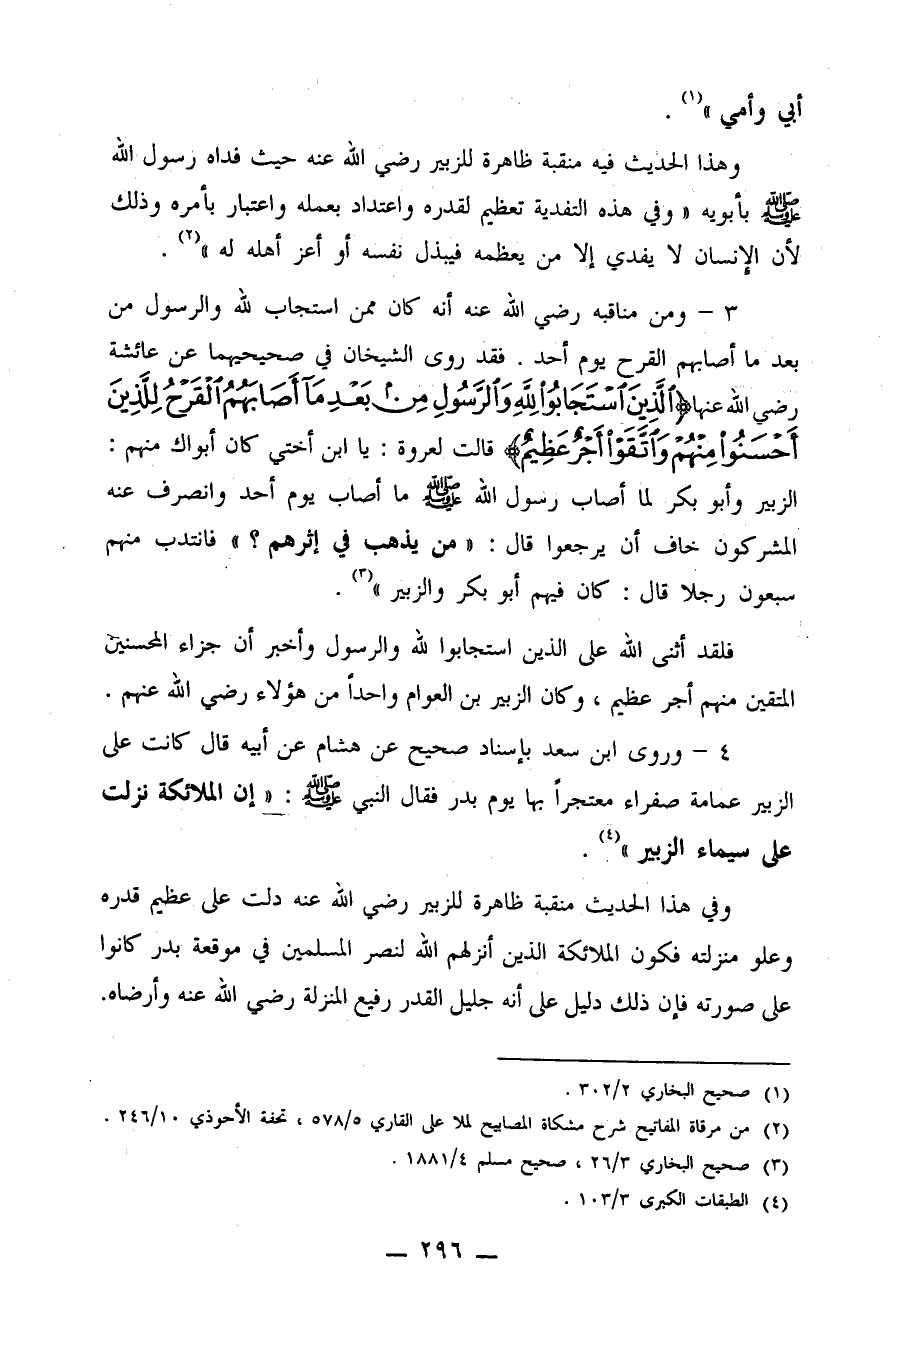 أبي وأمي »(١) .
وهذا الحديث فيه منقبة ظاهرة للزبير رضي الله عنه حيث فداه رسول الله
ﷺ بأبويه « وفي هذه التفدية تعظيم لقدره واعتداد بعمله واعتبار بأمره وذلك
لأن الإنسان لا يفدي إلا من يعظمه فيبذل نفسه أو أعز أهله له »(٢) .
٣ – ومن مناقبه رضي الله عنه أنه كان ممن استجاب لله والرسول من
بعد ما أصابهم القرح يوم أحد . فقد روى الشيخان في صحيحيهما عن عائشة
رضي الله عنها ﴿ٱلَّذِينَ ٱسْتَجَابُوا۟ لِلَّهِ وَٱلرَّسُولِ مِنۢ بَعْدِ مَآ أَصَابَهُمُ ٱلْقَرْحُ لِلَّذِينَ
أَحْسَنُوا۟ مِنْهُمْ وَٱتَّقَوْا۟ أَجْرٌ عَظِيمٌ﴾ قالت لعروة : يا ابن أختي كان أبواك منهم :
الزبير وأبو بكر لما أصاب رسول الله ﷺ ما أصاب يوم أحد وانصرف عنه
المشركون خاف أن يرجعوا قال : « من يذهب في إثرهم ؟ » فانتدب منهم
سبعون رجلا قال : كان فيهم أبو بكر والزبير »(٣) .
فلقد أثنى الله على الذين استجابوا لله والرسول وأخبر أن جزاء المحسنين
المتقين منهم أجر عظيم ، وكان الزبير بن العوام واحداً من هؤلاء رضي الله عنهم .
٤ – وروى ابن سعد بإسناد صحيح عن هشام عن أبيه قال كانت على
الزبير عمامة صفراء معتجراً بها يوم بدر فقال النبي ﷺ : « إن الملائكة نزلت
على سيماء الزبير »(٤) .
وفي هذا الحديث منقبة ظاهرة للزبير رضي الله عنه دلت على عظيم قدره
وعلو منزلته فكون الملائكة الذين أنزلهم الله لنصر المسلمين في موقعة بدر كانوا
على صورته فإن ذلك دليل على أنه جليل القدر رفيع المنزلة رضي الله عنه وأرضاه.
(١) صحيح البخاري ٣٠٢/٢ .
(٢) من مرقاة المفاتيح شرح مشكاة المصابيح لملا على القاري ٥٧٨/٥ ، تحفة الأحوذي ٢٤٦/١٠ .
(٣) صحيح البخاري ٢٦/٣ ، صحيح مسلم ١٨٨١/٤ .
(٤) الطبقات الكبرى ١٠٣/٣ .
— ٢٩٦ —